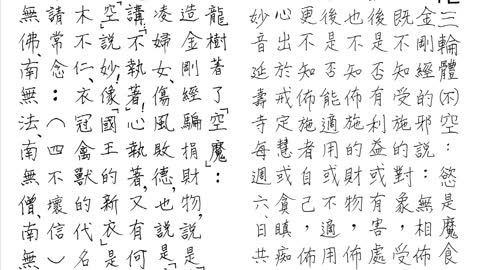 三輪體(不)空：慾是魔食
金剛經的邪說：無相佈
既不知受施的對象，受
後是否有利益或有害處
也不知佈施的財物，佈
後是否能適用或不適用
更不知佈施者自己，佈
心出於戒定慧或貪瞋痴
妙音延壽寺每週六、日共
龍樹著了「空魔」：
造金剛經騙捐財物，說是
凌婦女、傷風敗德，也說是
講「不執著！心執著，又有何
空」說妙！像「國王的新衣」是
木不仁、衣冠禽獸的代名
請常念：（四不壞信）
無佛、南無法、南無僧、南無